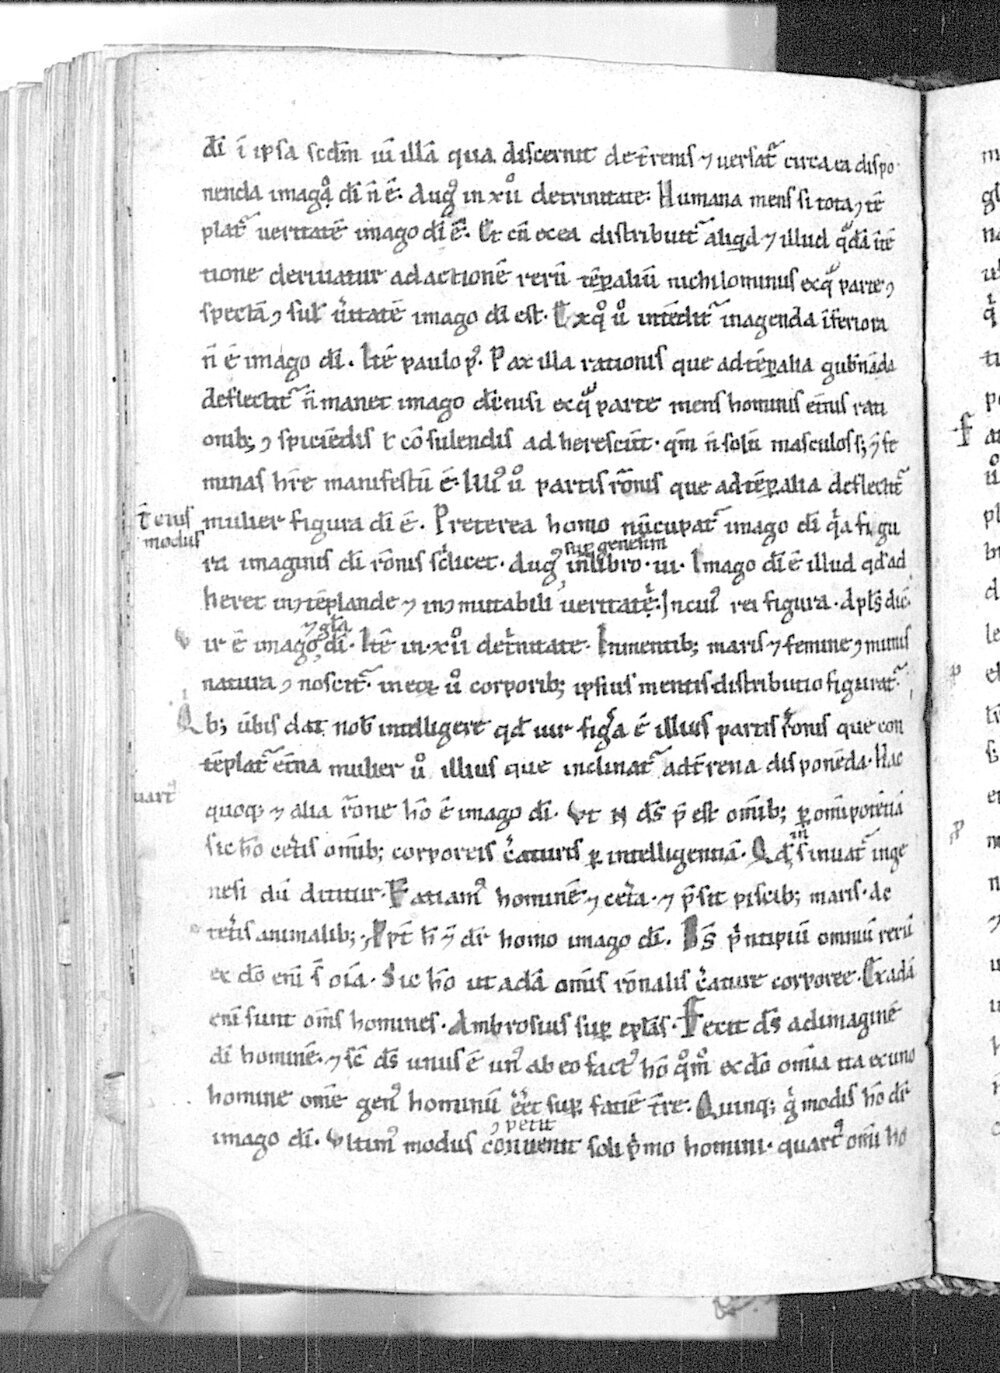 dī ī ipsa scdm̄ uī illā qua discernit de t̄renis ⁊ uersat᷑ circa ea dispo
nenda imago dī n̄ ē· aug᷒ in xv° de trinitate· Humana mens si tota ꝯtē
plat᷑ ueritatē imago dī ē· Et cū ex ea distribuit᷑ aliqd ⁊ illud q̄dā ītē
tione deriuatur ad actionē rerū tēꝑaliū nichilominus ex q̄ parte ꝯ
spectā ꝯsul̄ ūitatē imago dī est· Ex q° ū° intēdit᷑ in agenda īferiora
n̄ ē imago dī· Itē paulo p᷒· Pax illa rationis que ad tēꝑalia gub̄nāda
deflectit᷑ n̄ manet imago dī nisi ex q̄ parte mens hominis et̄nis rati
onib; ꝯspiciēdis ł cōsulendis adherescūt· qm̄ n̄ solū masculos s; ⁊ fe
minas hr̄e manifestū ē· Illi᷒ ū° partis rōnis que ad tēꝑalia deflectit᷑
t̄cius
modus
mulier figura dī ē· Preterea homo nūcupat᷑ imago dī q̄a figu
ra imaginis dī rōnis scilicet· aug᷒ in libro· ui· Imago dī ē illud qd̄ ad
suꝑ genesim
heret ꝯtēplande ⁊ inꝯmutabili ueritati· In cui᷒ rei figura· apl̄s dic̄·
Vir ē imago dī· Itē in· xu· de t̄nitate· In mentib; maris ⁊ femine ꝯmunis
⁊ gl̄a
natura ꝯnoscit᷑· in eoꝝ ū° corporib; ipsius mentis distributio figurat᷑·
Qb; ūbis dat nob̄ intelligere qd̄ uir figᵃa ē illius partis rōnis que con
tēplat᷑ et̄na mulier ū° illius que inclinat᷑ ad t̄rena disponēda· Hac
uart᷒
quoq; ⁊ alia rōne hō ē imago dī· Vt N ds̄ p̄ est omīb; ꝑ omīpotētiā
sic hō cet̄is omīb; corporeis c̄aturis ꝑ intelligentiā· Qd̄ īsinuat᷑ in ge
nesi dū dicitur· Fatiam᷒ hominē ⁊ cet̄a· ⁊ p̄sit piscib; maris· de
tet̄is animalib; ⁊ ppt̄ h̄ ⁊ dr̄ homo imago dī· Ds̄ p̄ntipiū omniū rerū
ex dō enī s̄ oīa· Sic hō ut adā omīs rōnalis c̄ature corporee· Ex adā
enī sunt omīs homines· Ambrosius suꝑ epl̄as· Fecit ds̄ ad imaginē
dī hominē· ⁊ sic̄ ds̄ unus ē un᷒ ab eo fact᷒ hō q°m° ex dō omīa ita ex uno
homine omē gen᷒ hominū eēt suꝑ fatiē t̄re· Quinq; q̄ modis hō dr̄
imago dī· Vltim᷒ modus conuenit soli p̄mo homini· quart᷒ omī ho
ꝯpetit